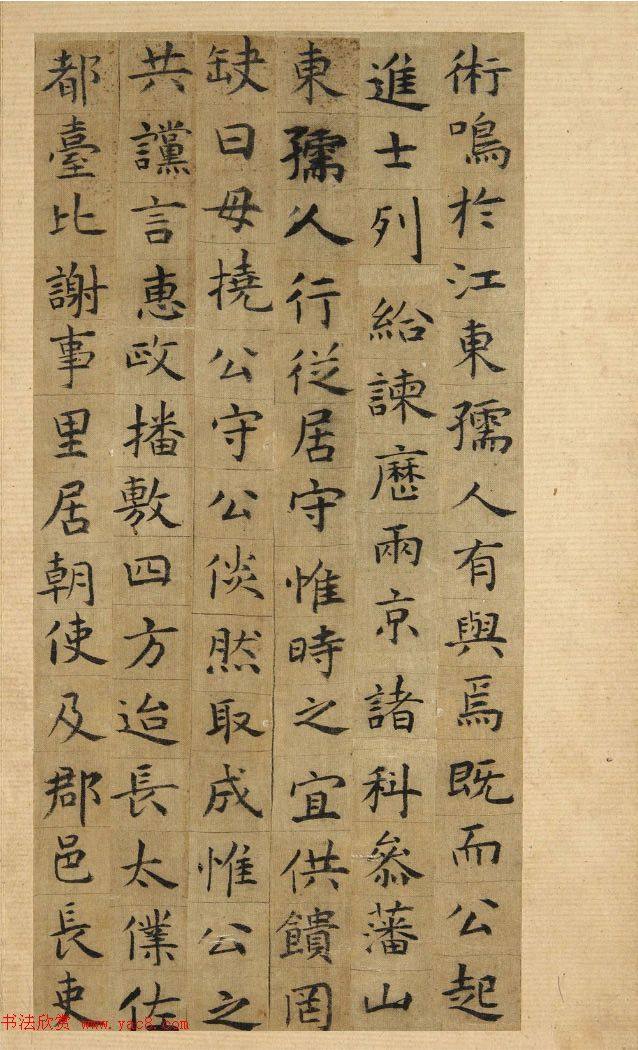 術鳴於江東孺人有與焉既而公起
進士列給諫歷兩京諸科叅藩山
東孺人行從居守惟時之宜供饋罔
缺曰毋撓公守公倓然取成惟公之
共讜言惠政播敷四方迨長太僕佐
都臺比謝事里居朝使及郡邑長吏
书法欣赏 www.yac8.com